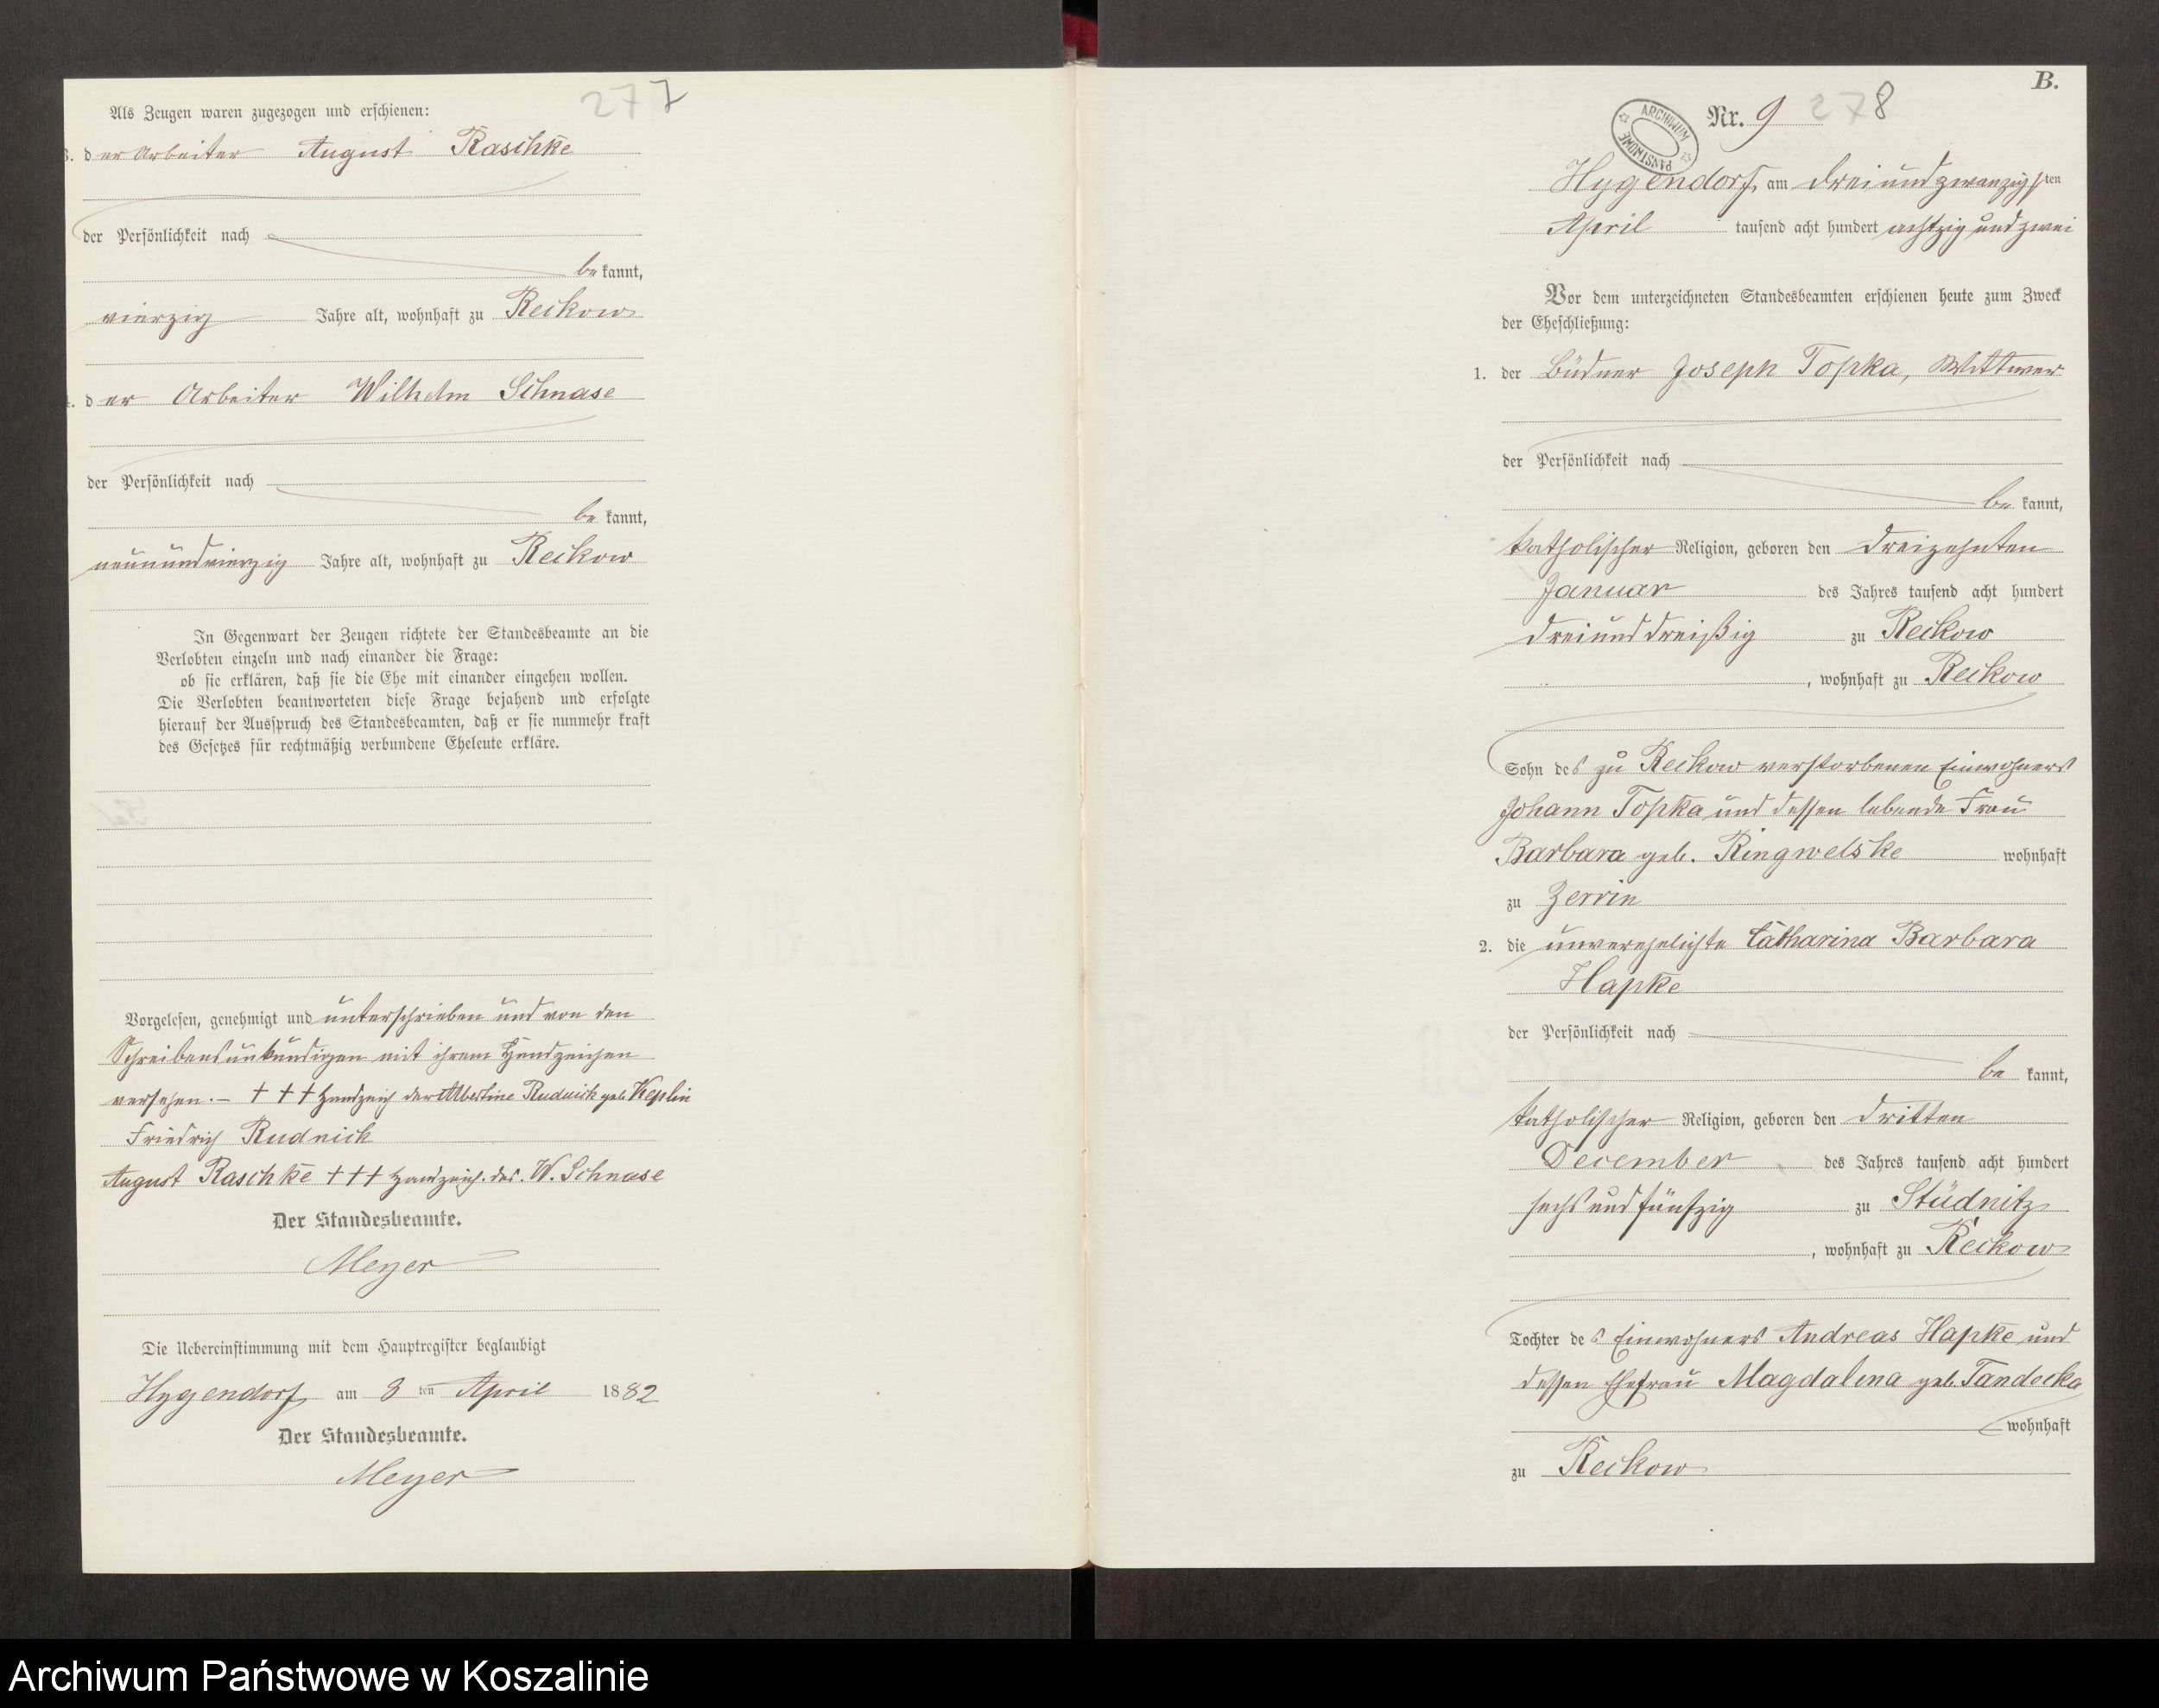 277
Als Zeugen waren zugezogen und erschienen:
3. der Arbeiter August Raschke
der Persönlichkeit nach
be kannt,
vierzig Jahre alt, wohnhaft zu Reckow
4. der Arbeiter Wilhelm Schnase
der Persönlichkeit nach
be kannt,
neunundvierzig Jahre alt, wohnhaft zu Reckow
In Gegenwart der Zeugen richtete der Standesbeamte an die
Verlobten einzeln und nach einander die Frage:
ob sie erklären, daß sie die Ehe mit einander eingehen wollen.
Die Verlobten beantworteten diese Frage bejahend und erfolgte
hierauf der Ausspruch des Standesbeamten, daß er sie nunmehr kraft
des Gesetzes für rechtmäßig verbundene Eheleute erkläre.
Vorgelesen, genehmigt und unterschrieben und von den
Schreibensunkundigen mit ihrem Handzeichen
versehen. – +++ Handzeich der Albertine Rudnick geb. Keplin
Friedrich Rudnick
August Raschke +++ Handzeich. des. W. Schnase
Der Standesbeamte.
Meyer
Die Uebereinstimmung mit dem Hauptregister beglaubigt
Hygendorf am 3 ten April 1882
Der Standesbeamte.
Meyer
B.
Nr. 9 278
ARCHIWUM PAŃSTWOWE
Hygendorf, am dreiundzwanzigsten
April tausend acht hundert achtzig und zwei
Vor dem unterzeichneten Standesbeamten erschienen heute zum Zweck
der Eheschließung:
1. der Büdner Joseph Topka, Wittwer
der Persönlichkeit nach
be kannt,
katholischer Religion, geboren den dreizehnten
Januar des Jahres tausend acht hundert
dreiunddreißig zu Reckow
, wohnhaft zu Reckow
Sohn des zu Reckow verstorbenen Einwohners
Johann Topka und dessen lebende Frau
Barbara geb. Ringwelske wohnhaft
zu Zerrin
2. die unverehelichte Catharina Barbara
Hapke
der Persönlichkeit nach
be kannt,
katholischer Religion, geboren den dritten
December des Jahres tausend acht hundert
sechs und fünfzig zu Stüdnitz
, wohnhaft zu Reckow
Tochter des Einwohners Andreas Hapke und
dessen Ehefrau Magdalena geb. Tandecka
wohnhaft
zu Reckow
Archiwum Państwowe w Koszalinie